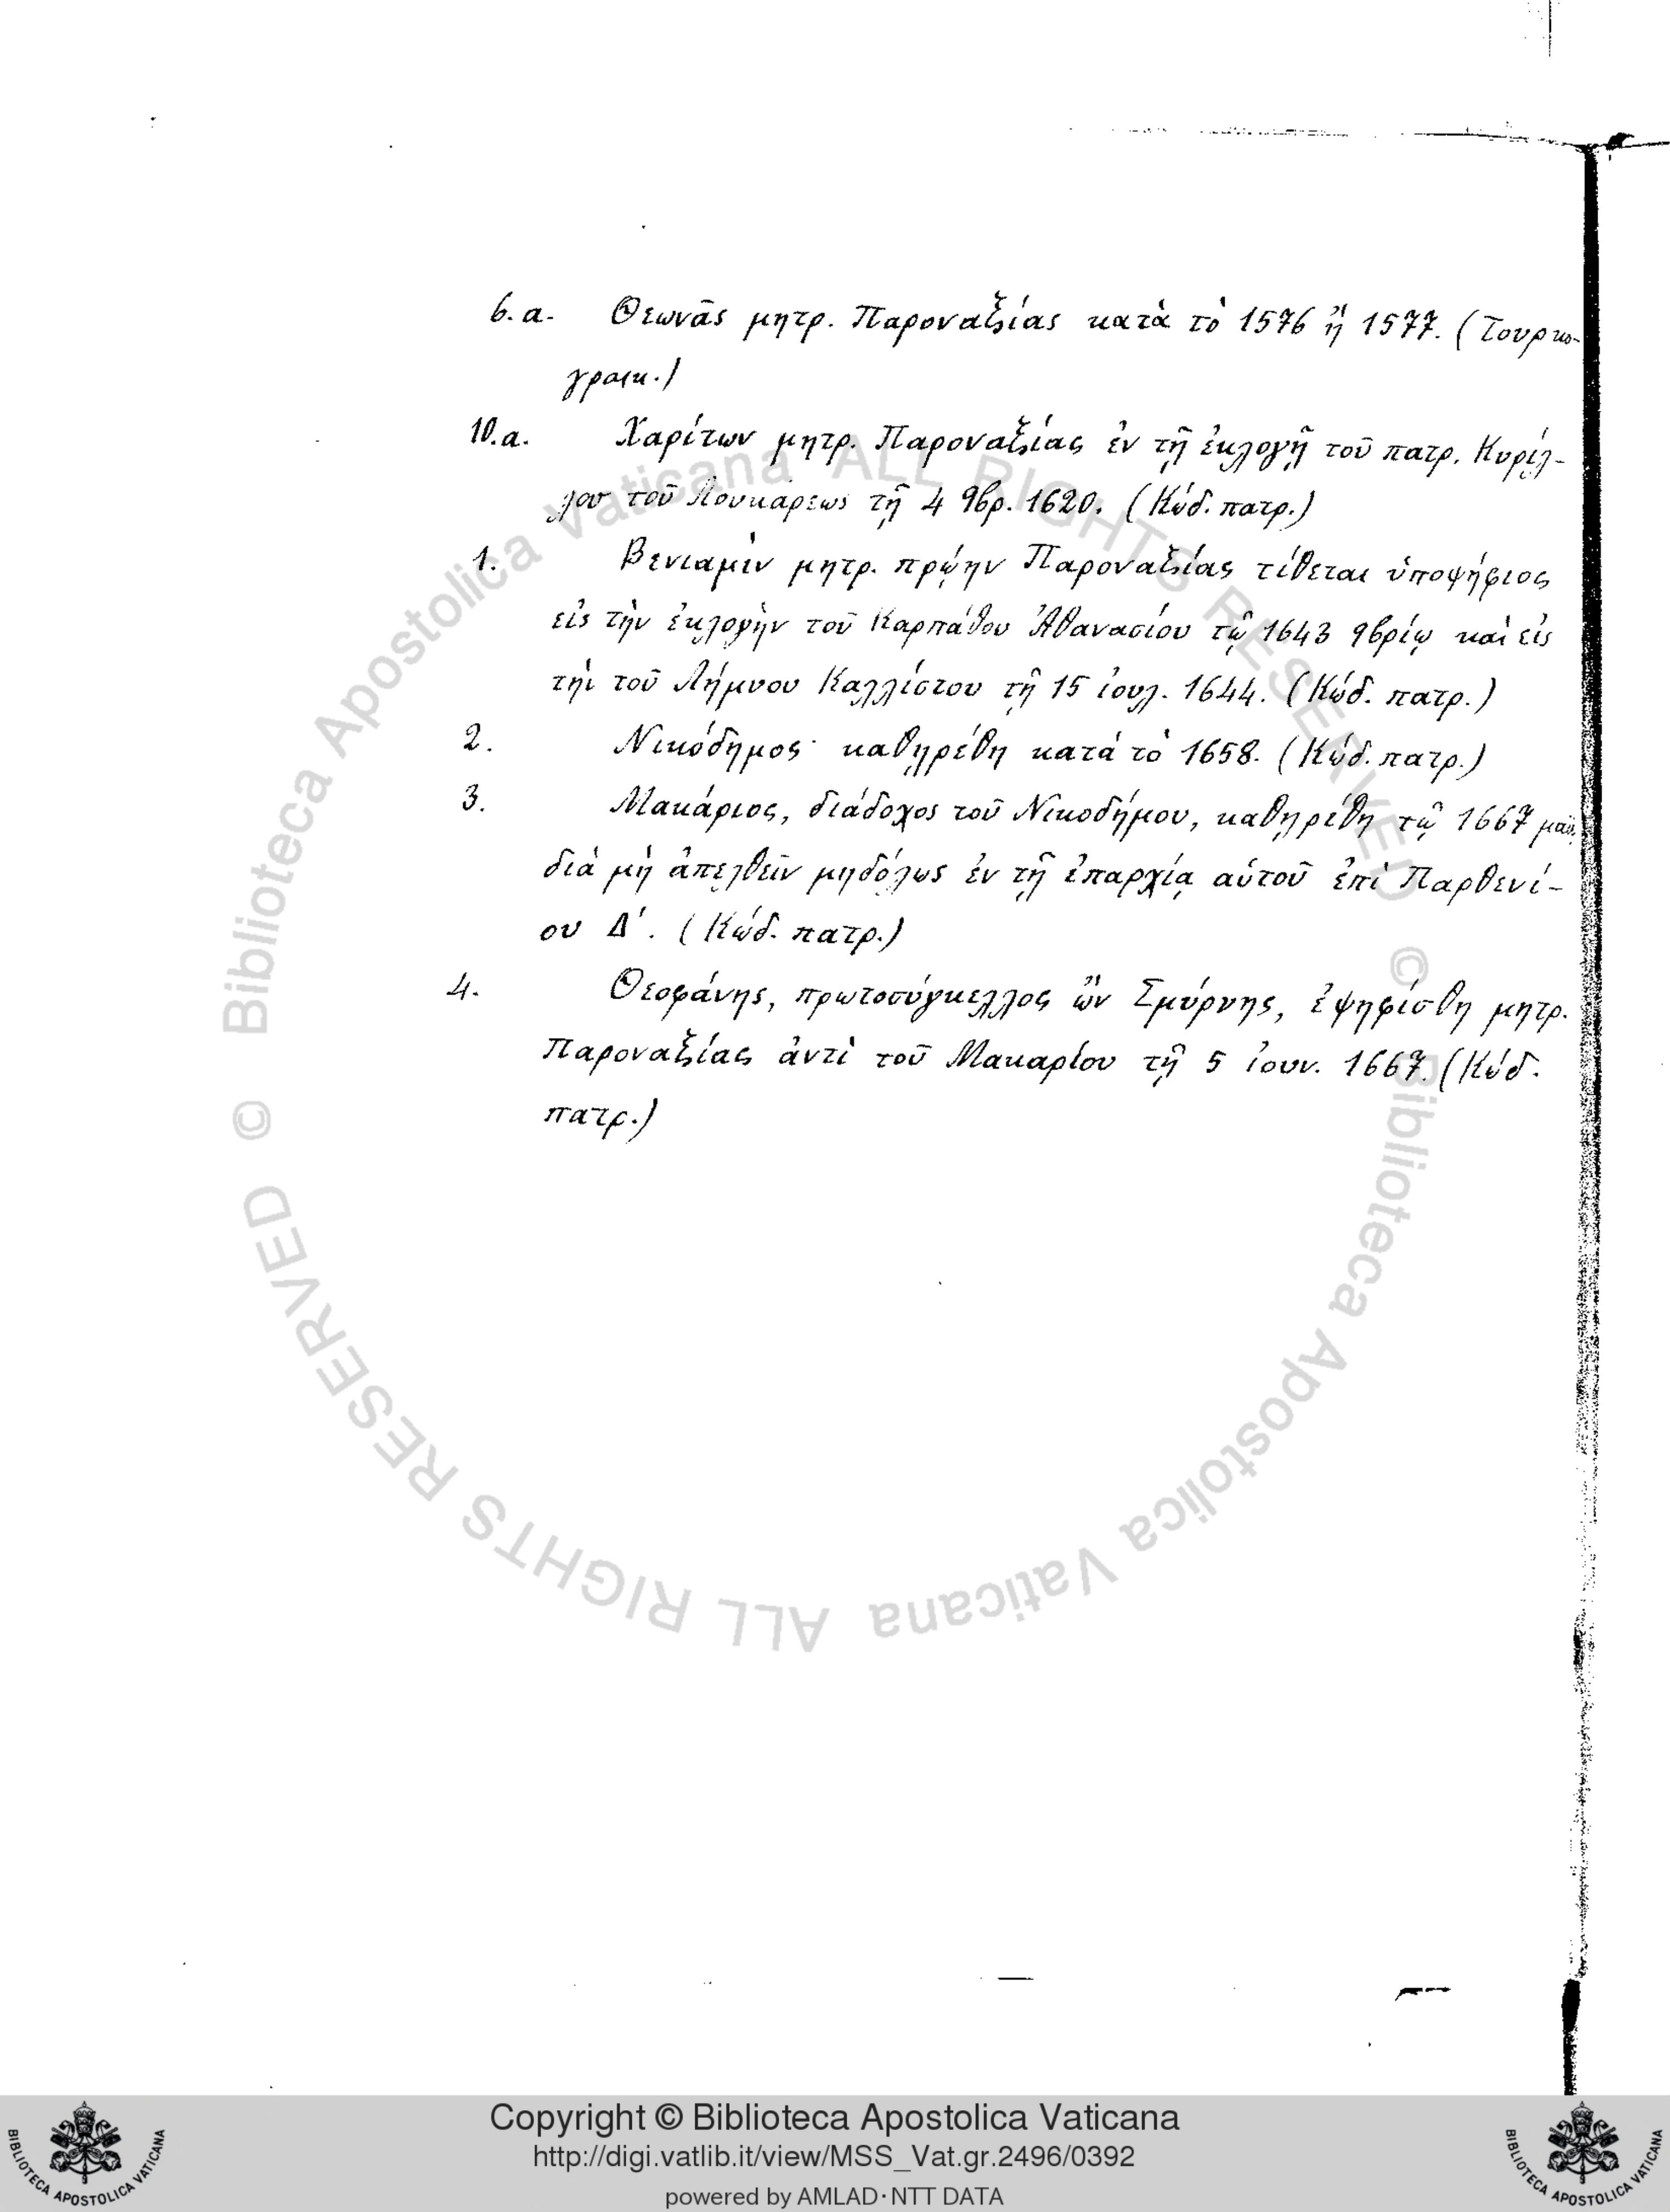 6.α. Θεωνᾶς μητρ. Παροναξίας κατὰ τὸ 1576 ἢ 1577. (Τουρκο-
γραικ.)
10.α. Χαρίτων μητρ. Παροναξίας ἐν τῇ ἐκλογῇ τοῦ πατρ. Κυρίλ-
λου τοῦ Λουκάρεως τῇ 4 9βρ. 1620. (Κώδ. πατρ.)
1. Βενιαμὶν μητρ. πρώην Παροναξίας τίθεται ὑποψήφιος
εἰς τὴν ἐκλογὴν τοῦ Καρπάθου Ἀθανασίου τῷ 1643 9βρίῳ καὶ εἰς
τὴν τοῦ Λήμνου Καλλίστου τῇ 15 ἰουλ. 1644. (Κώδ. πατρ.)
2. Νικόδημος· καθῃρέθη κατὰ τὸ 1658. (Κώδ. πατρ.)
3. Μακάριος, διάδοχος τοῦ Νικοδήμου, καθῃρέθη τῷ 1667 μαΐῳ
διὰ μὴ ἀπελθεῖν μηδόλως ἐν τῇ ἐπαρχίᾳ αὑτοῦ ἐπὶ Παρθενί-
ου Δ΄. (Κώδ. πατρ.)
4. Θεοφάνης, πρωτοσύγκελλος ὢν Σμύρνης, ἐψηφίσθη μητρ.
Παροναξίας ἀντὶ τοῦ Μακαρίου τῇ 5 ἰουν. 1667. (Κώδ.
πατρ.)
© Biblioteca Apostolica Vaticana ALL RIGHTS RESERVED © Biblioteca Apostolica Vaticana ALL RIGHTS RESERVED
Copyright © Biblioteca Apostolica Vaticana
http://digi.vatlib.it/view/MSS_Vat.gr.2496/0392
powered by AMLAD·NTT DATA
BIBLIOTECA APOSTOLICA VATICANA
BIBLIOTECA APOSTOLICA VATICANA